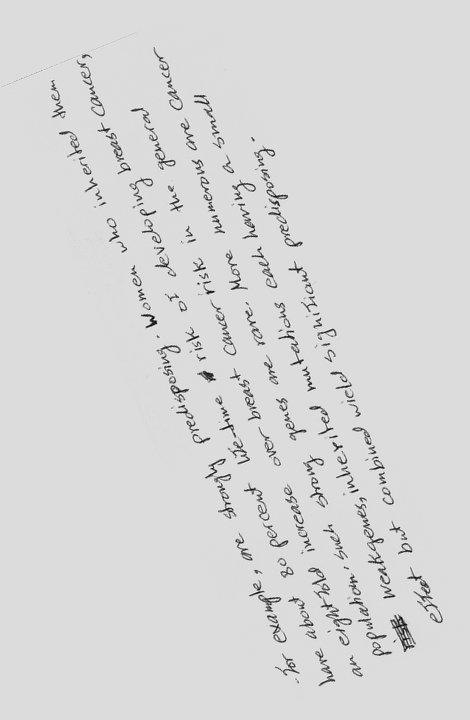 -for example, are strongly predisposing. Women who inherited them
have about 80 percent life-time risk of developing breast cancer,
an eightfold increase over breast cancer risk in the general
population, such strong genes are rare. More numerous are cancer
weakgenes, inherited mutations each having a small
effect but combined wield significant predisposing.